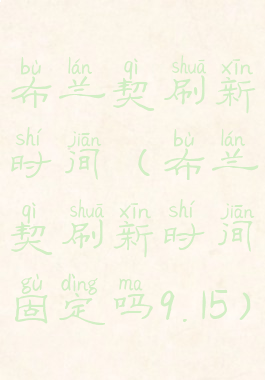 bù lán qì shuā xīn
布兰契刷新
shí jiān bù lán
时间（布兰
qì shuā xīn shí jiān
契刷新时间
gù dìng ma
固定吗9.15）